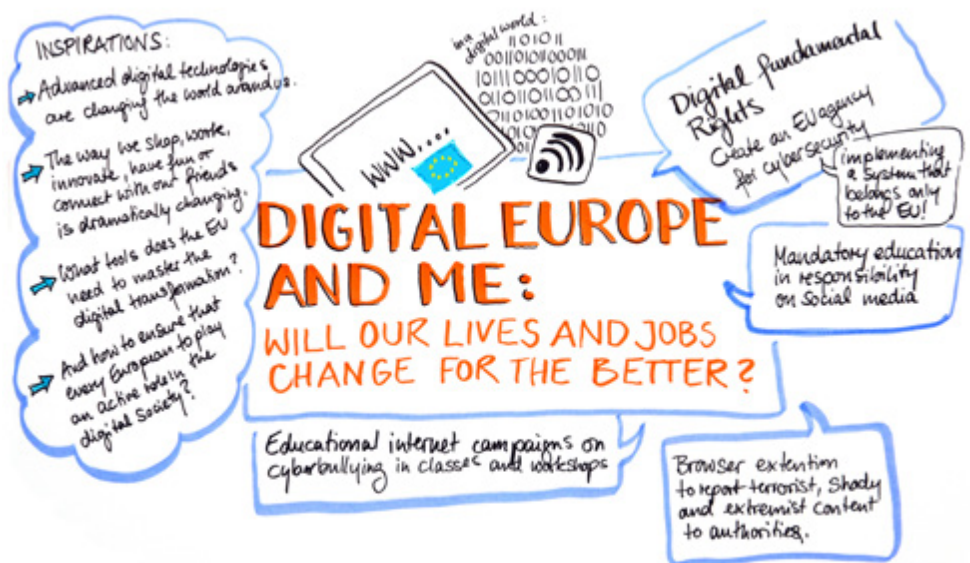 INSPIRATIONS:
Advanced digital technologies
are changing the world around us.
The way we shop, work,
innovate, have fun or
connect with our friends
is dramatically changing.
What tools does the EU
need to master the
digital transformation?
And how to ensure that
every European to play
an active role in the
digital society?
in a
digital world:
11010 11
0011010110
10111 00010110
0110110101011
WWW....
DIGITAL EUROPE
AND ME:
WILL OUR LIVES AND JOBS
CHANGE FOR THE BETTER?
Digital fundamartal
Rights
Create an EU agency
for cybersecurity
implementing
a system that
belongs only
to the EU!
Mandatory education
in responsibility
on social media
Educational internet campaigns on
cyberbullying in classes and workshops
Browser extention
to report terrorist, Shady
and extremist content
to authorities.